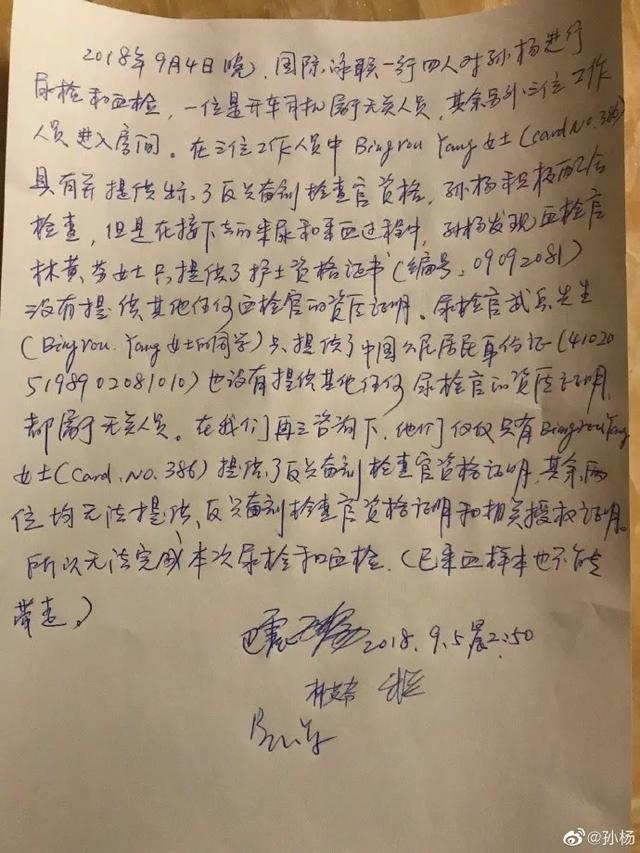 2018年9月4日晚，国际泳联一行四人对孙杨进行
尿检和血检，一位是开车司机属于无关人员，其余另外三位工作
人员进入房间。在三位工作人员中Bingrou Yang女士(card No.386)
具有并提供出示了反兴奋剂检查官资格，孙杨积极配合
检查，但是在接下去的采尿和采血过程中，孙杨发现血检官
林黄芬女士只提供了护士资格证书（编号：09092081）
没有提供其他任何血检官的资质证明。尿检官武兵先生
（Bingrou Yang女士的同学）只提供了中国公民居民身份证（41020
5198902081010）也没有提供其他任何尿检官的资质证明，
都属于无关人员。在我们再三咨询下，他们仅仅只有Bingrou Yang
女士(Card.No.386)提供了反兴奋剂检查官资格证明，其余两
位均无法提供反兴奋剂检查官资格证明和相关授权证明。
所以无法完成本次尿检和血检.（已采血样本也不能
带走。）
2018.9.5晨2:50
@孙杨